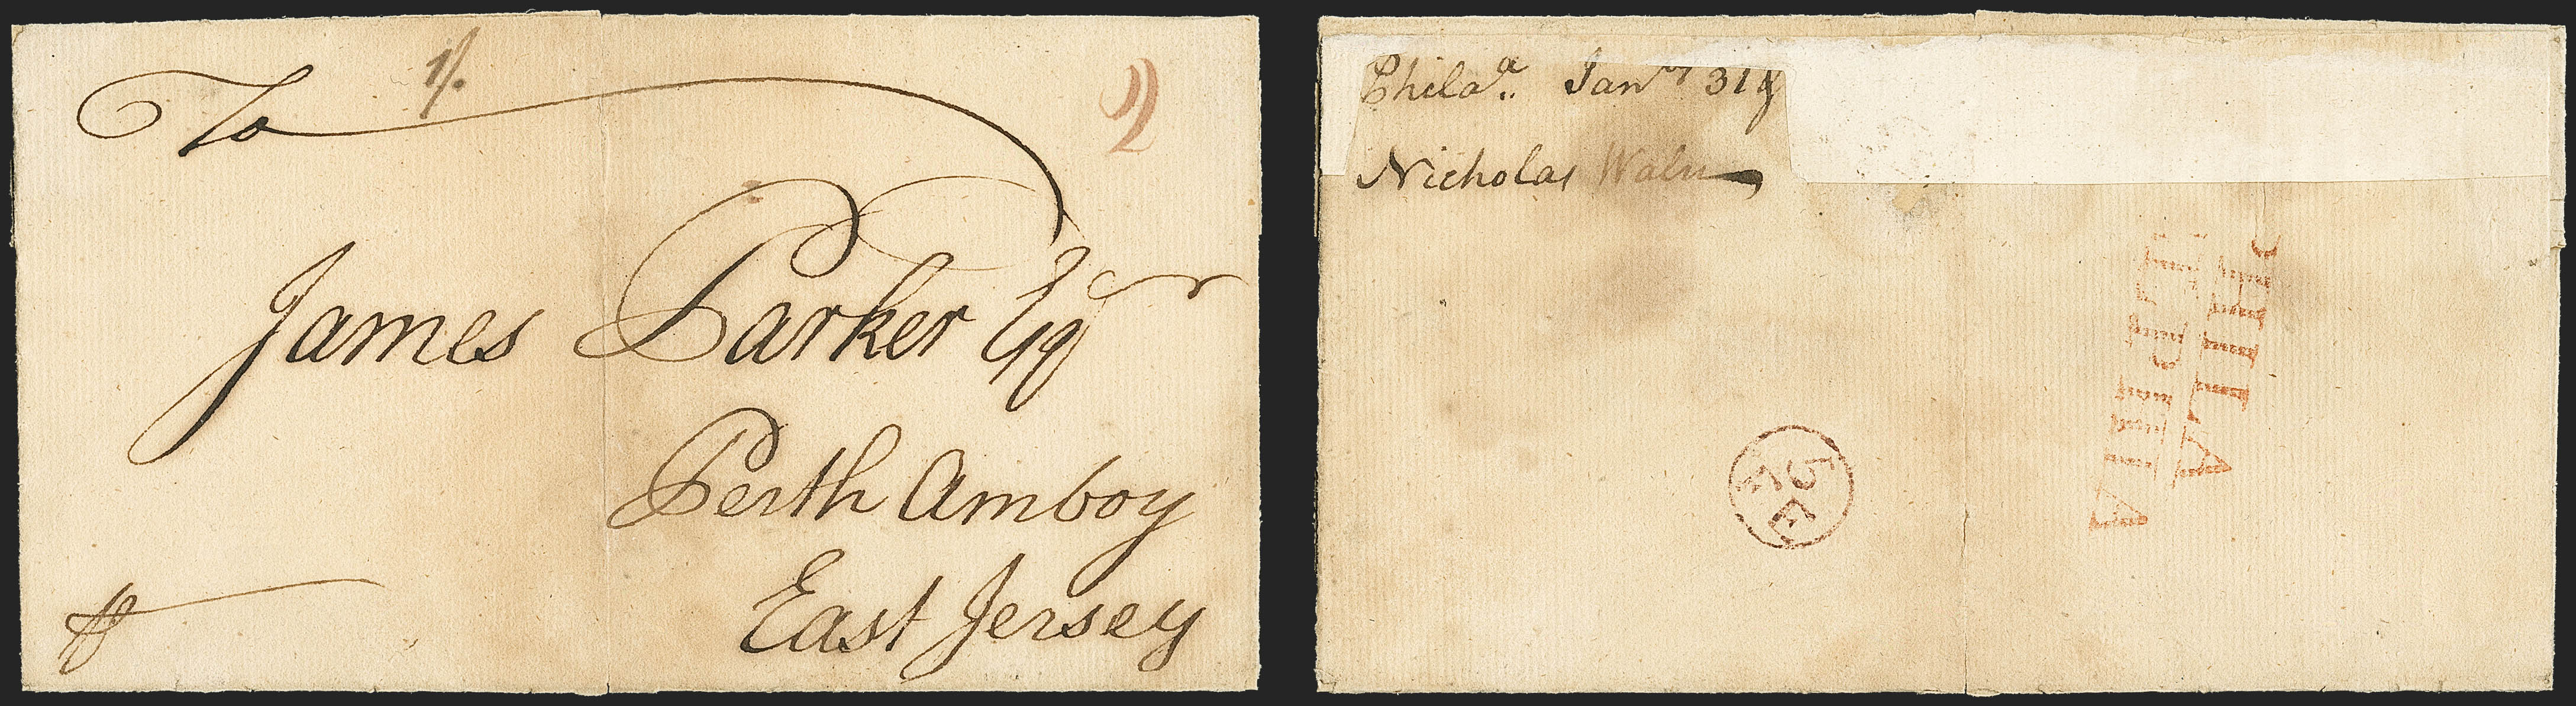 1/.
To
2
James Parker Esqr
Perth Amboy
East Jersey
Philaa.. Janry 31
Nicholas Waln
PHILA
DELPHIA
2
FE